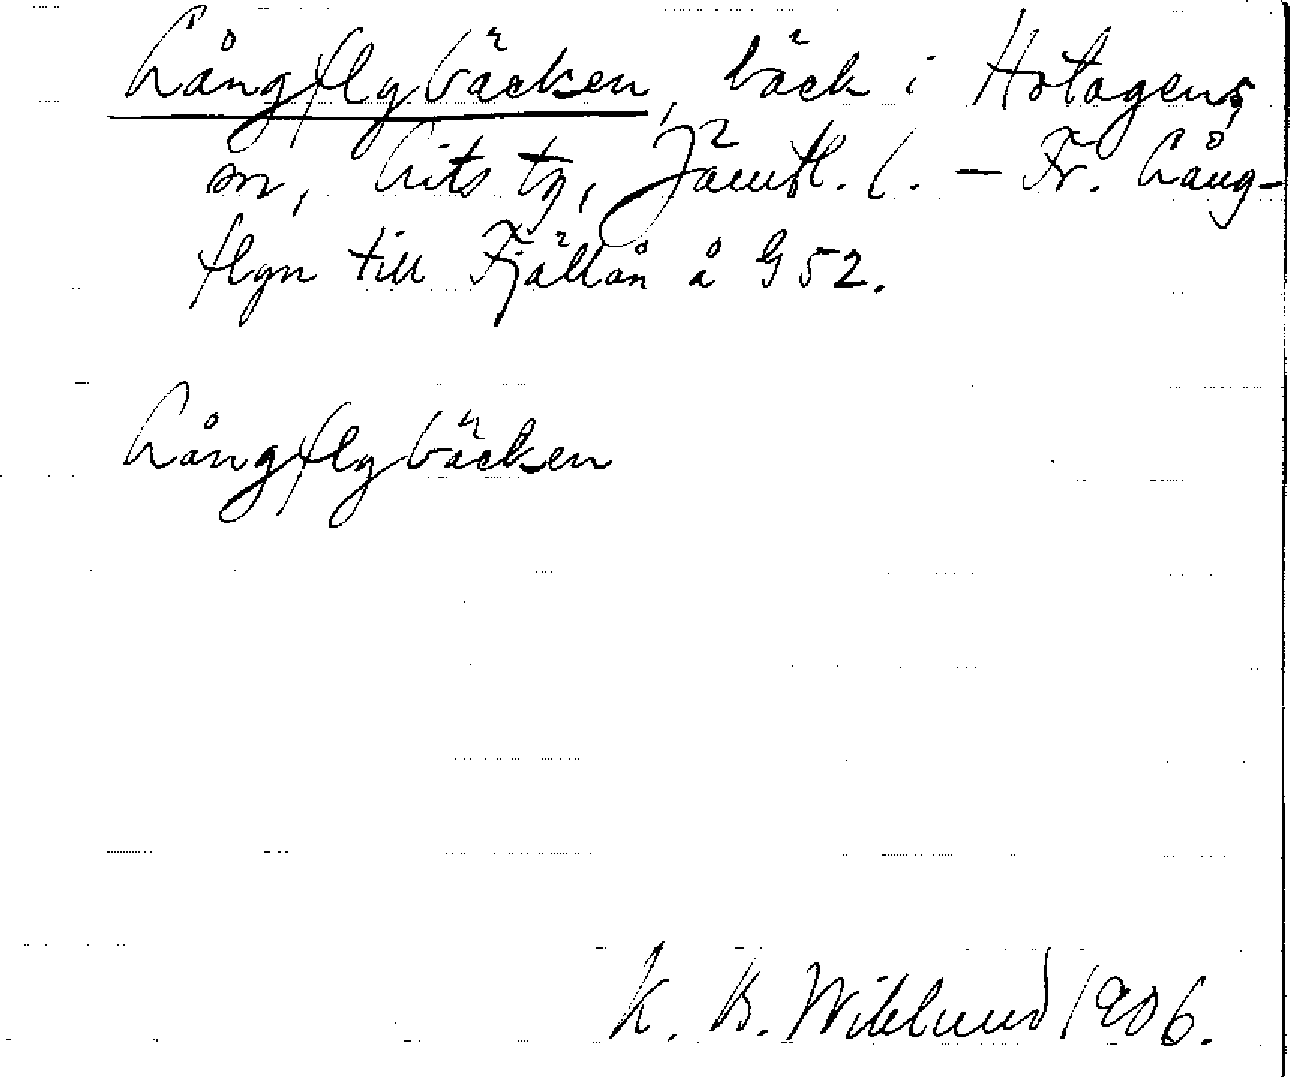 Långflybäcken, bäck i Hotagens
sn, Lits tg, Jämtl. l. – Fr. Lång-
flyn till Fjällån å G 52.
Långflybäcken
K. B. Wiklund 1906.